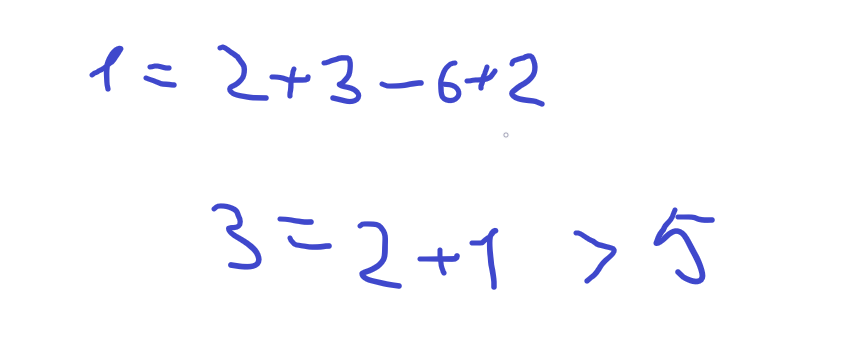 1 = 2 + 3 - 6 + 2
3 = 2 + 1 > 5